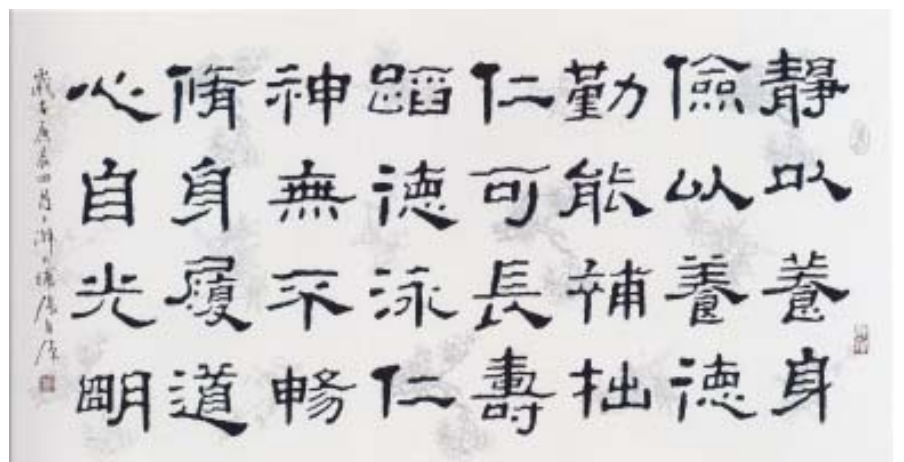 靜以養身
儉以養德
勤能補拙
仁可長壽
蹈德泳仁
神無不暢
脩身履道
心自光明